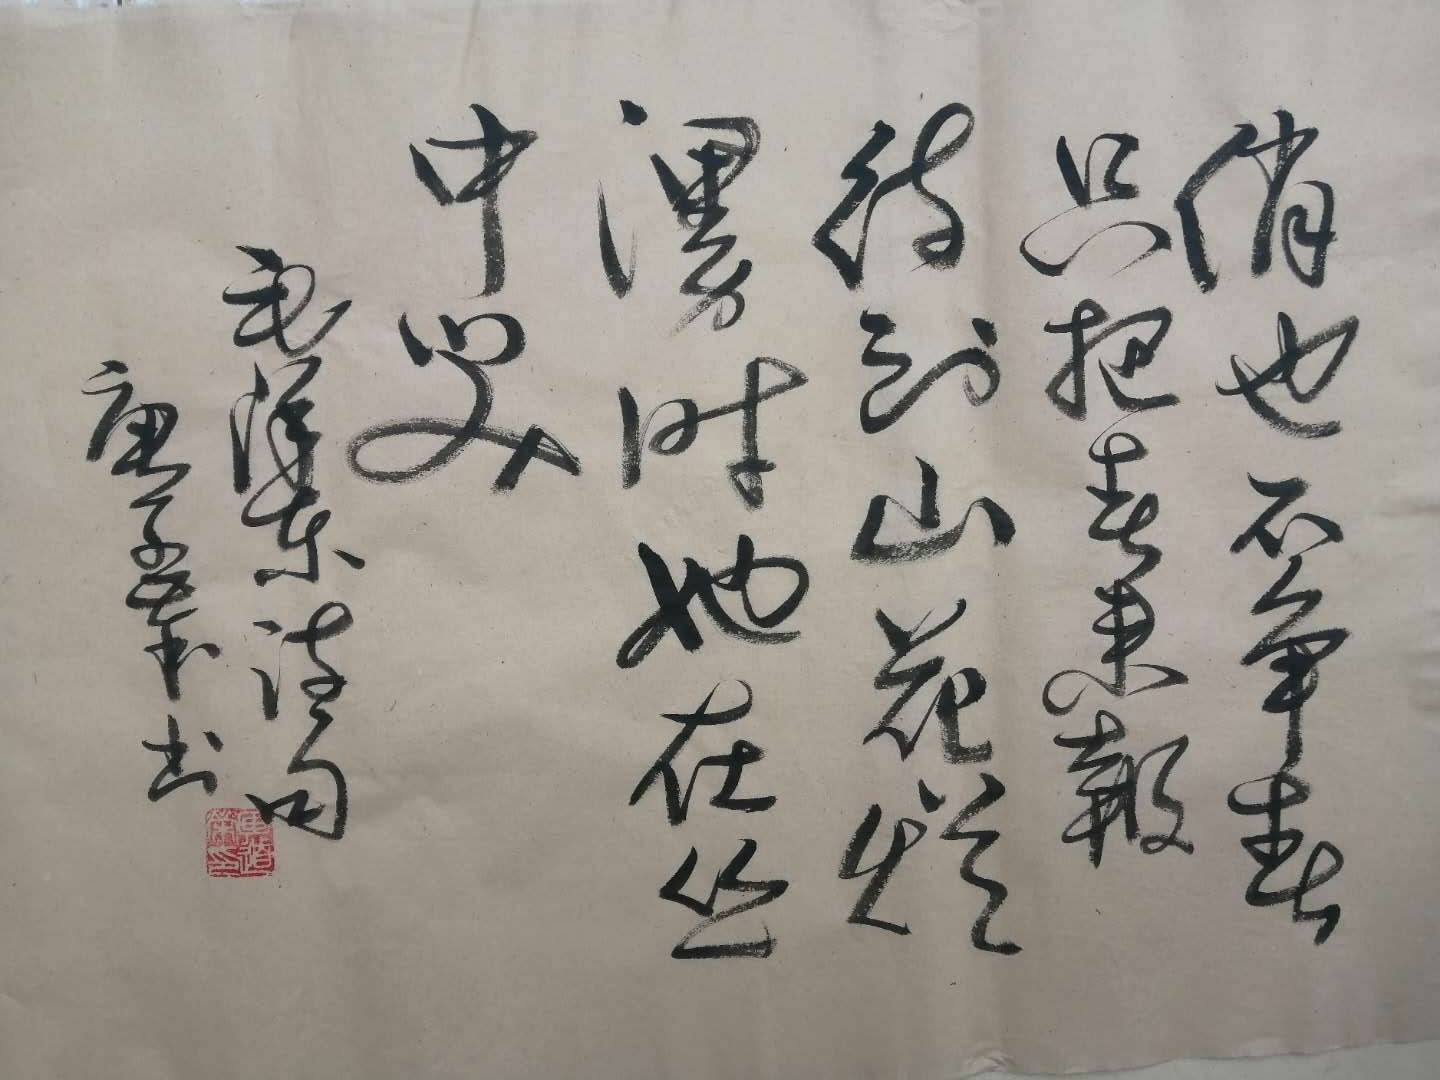 俏也不争春
只把春来報
待到山花烂
漫时她在丛
中笑
毛泽东诗句
庚子
书